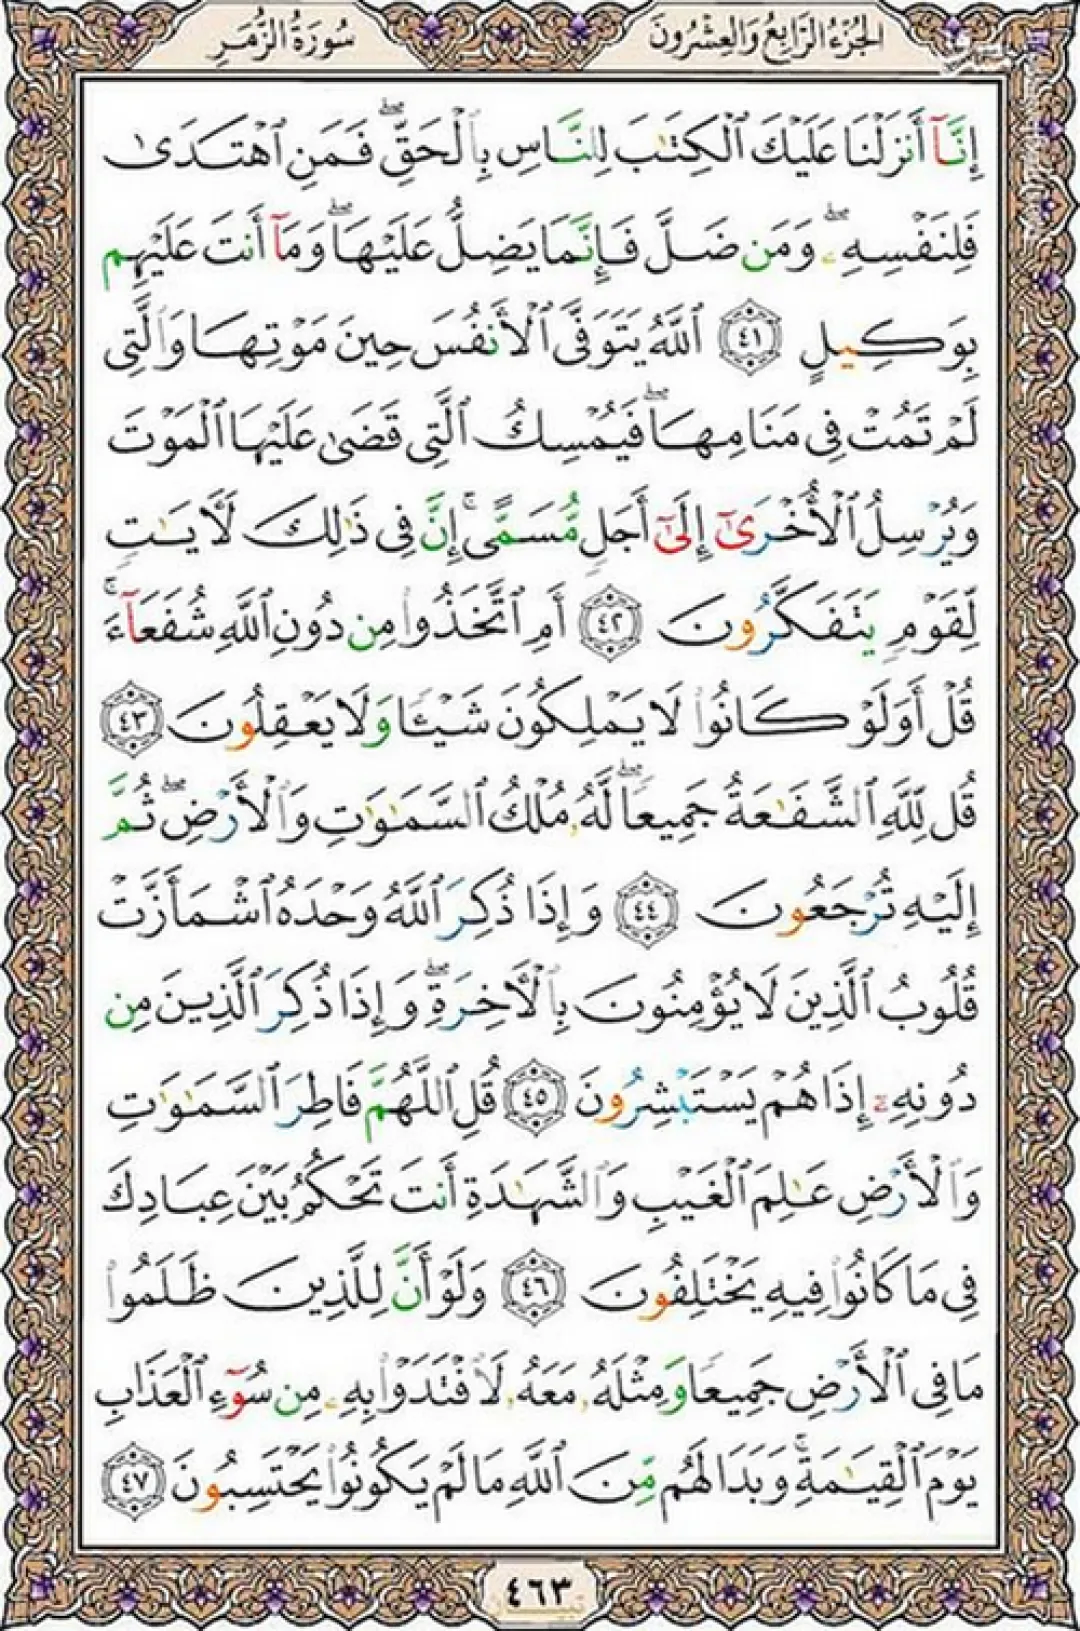 الجُزْءُ الرَّابِعُ وَالعِشْرُونَ
سُورَةُ الزُّمَرِ
إِنَّآ أَنزَلْنَا عَلَيْكَ ٱلْكِتَـٰبَ لِلنَّاسِ بِٱلْحَقِّ ۖ فَمَنِ ٱهْتَدَىٰ
فَلِنَفْسِهِۦ ۖ وَمَن ضَلَّ فَإِنَّمَا يَضِلُّ عَلَيْهَا ۖ وَمَآ أَنتَ عَلَيْهِم
بِوَكِيلٍ ٤١ ٱللَّهُ يَتَوَفَّى ٱلْأَنفُسَ حِينَ مَوْتِهَا وَٱلَّتِى
لَمْ تَمُتْ فِى مَنَامِهَا ۖ فَيُمْسِكُ ٱلَّتِى قَضَىٰ عَلَيْهَا ٱلْمَوْتَ
وَيُرْسِلُ ٱلْأُخْرَىٰٓ إِلَىٰٓ أَجَلٍ مُّسَمًّى ۚ إِنَّ فِى ذَٰلِكَ لَـَٔايَـٰتٍ
لِّقَوْمٍ يَتَفَكَّرُونَ ٤٢ أَمِ ٱتَّخَذُوا۟ مِن دُونِ ٱللَّهِ شُفَعَآءَ ۚ
قُلْ أَوَلَوْ كَانُوا۟ لَا يَمْلِكُونَ شَيْـًٔا وَلَا يَعْقِلُونَ ٤٣
قُل لِّلَّهِ ٱلشَّفَـٰعَةُ جَمِيعًا ۖ لَّهُۥ مُلْكُ ٱلسَّمَـٰوَٰتِ وَٱلْأَرْضِ ۖ ثُمَّ
إِلَيْهِ تُرْجَعُونَ ٤٤ وَإِذَا ذُكِرَ ٱللَّهُ وَحْدَهُ ٱشْمَأَزَّتْ
قُلُوبُ ٱلَّذِينَ لَا يُؤْمِنُونَ بِٱلْـَٔاخِرَةِ ۖ وَإِذَا ذُكِرَ ٱلَّذِينَ مِن
دُونِهِۦٓ إِذَا هُمْ يَسْتَبْشِرُونَ ٤٥ قُلِ ٱللَّهُمَّ فَاطِرَ ٱلسَّمَـٰوَٰتِ
وَٱلْأَرْضِ عَـٰلِمَ ٱلْغَيْبِ وَٱلشَّهَـٰدَةِ أَنتَ تَحْكُمُ بَيْنَ عِبَادِكَ
فِى مَا كَانُوا۟ فِيهِ يَخْتَلِفُونَ ٤٦ وَلَوْ أَنَّ لِلَّذِينَ ظَلَمُوا۟
مَا فِى ٱلْأَرْضِ جَمِيعًا وَمِثْلَهُۥ مَعَهُۥ لَٱفْتَدَوْا۟ بِهِۦ مِن سُوٓءِ ٱلْعَذَابِ
يَوْمَ ٱلْقِيَـٰمَةِ ۚ وَبَدَا لَهُم مِّنَ ٱللَّهِ مَا لَمْ يَكُونُوا۟ يَحْتَسِبُونَ ٤٧
٤٦٣